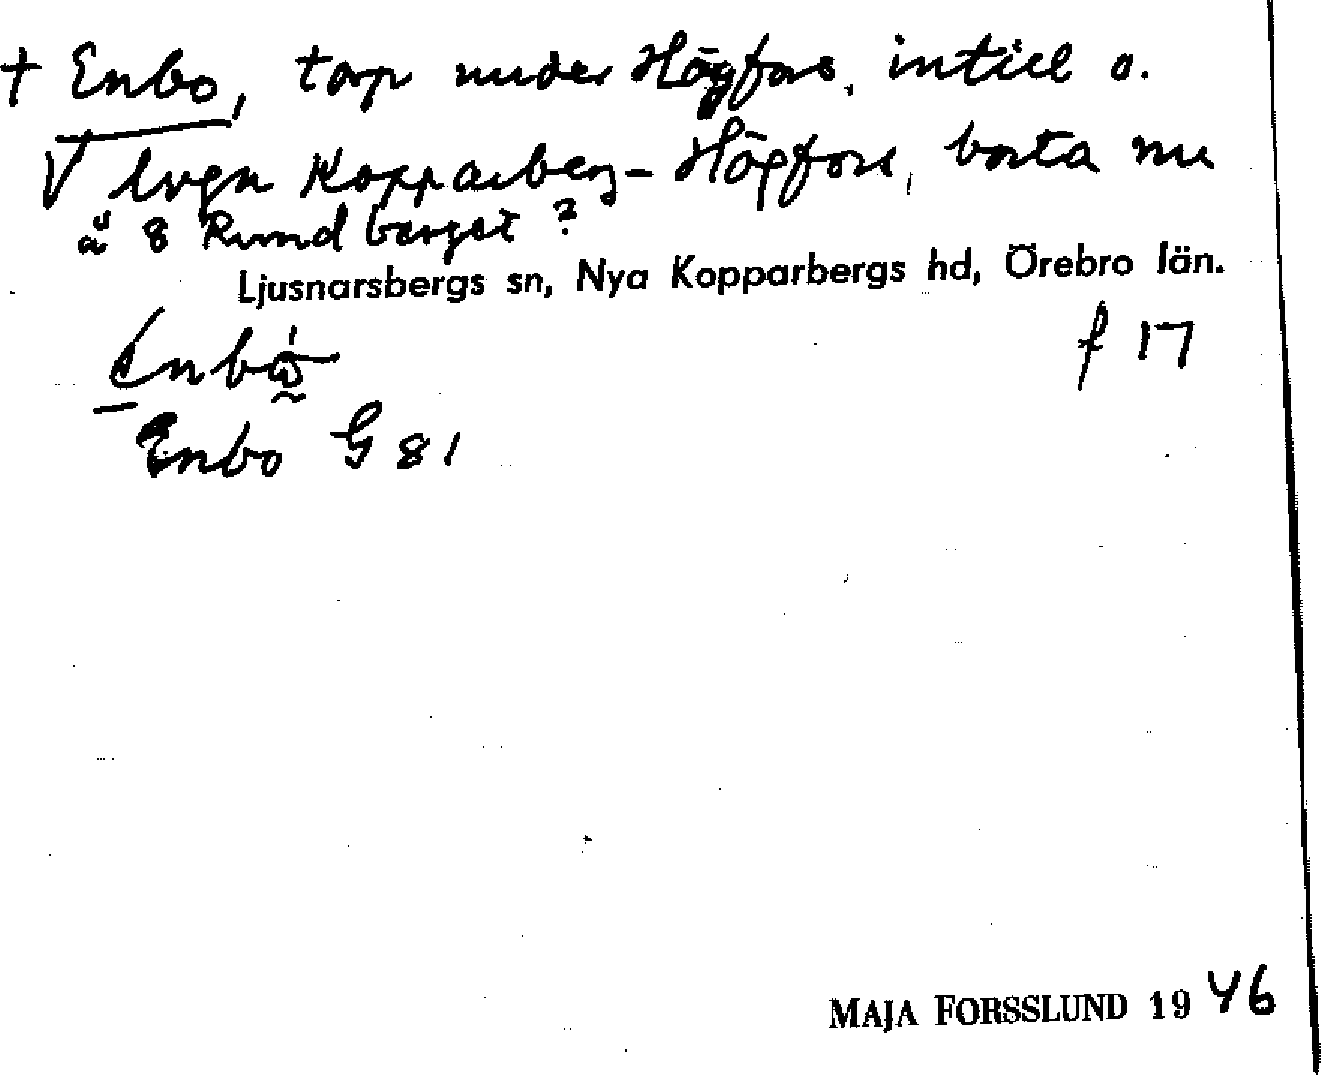 † Enbo, torp under Högfors, intill o.
V lvgn Kopparberg-Högfors, borta nu
å 8 Rundberget?
Ljusnarsbergs sn, Nya Kopparbergs hd, Örebro län.
f 17
Enbo G 81
MAJA FORSSLUND 1946